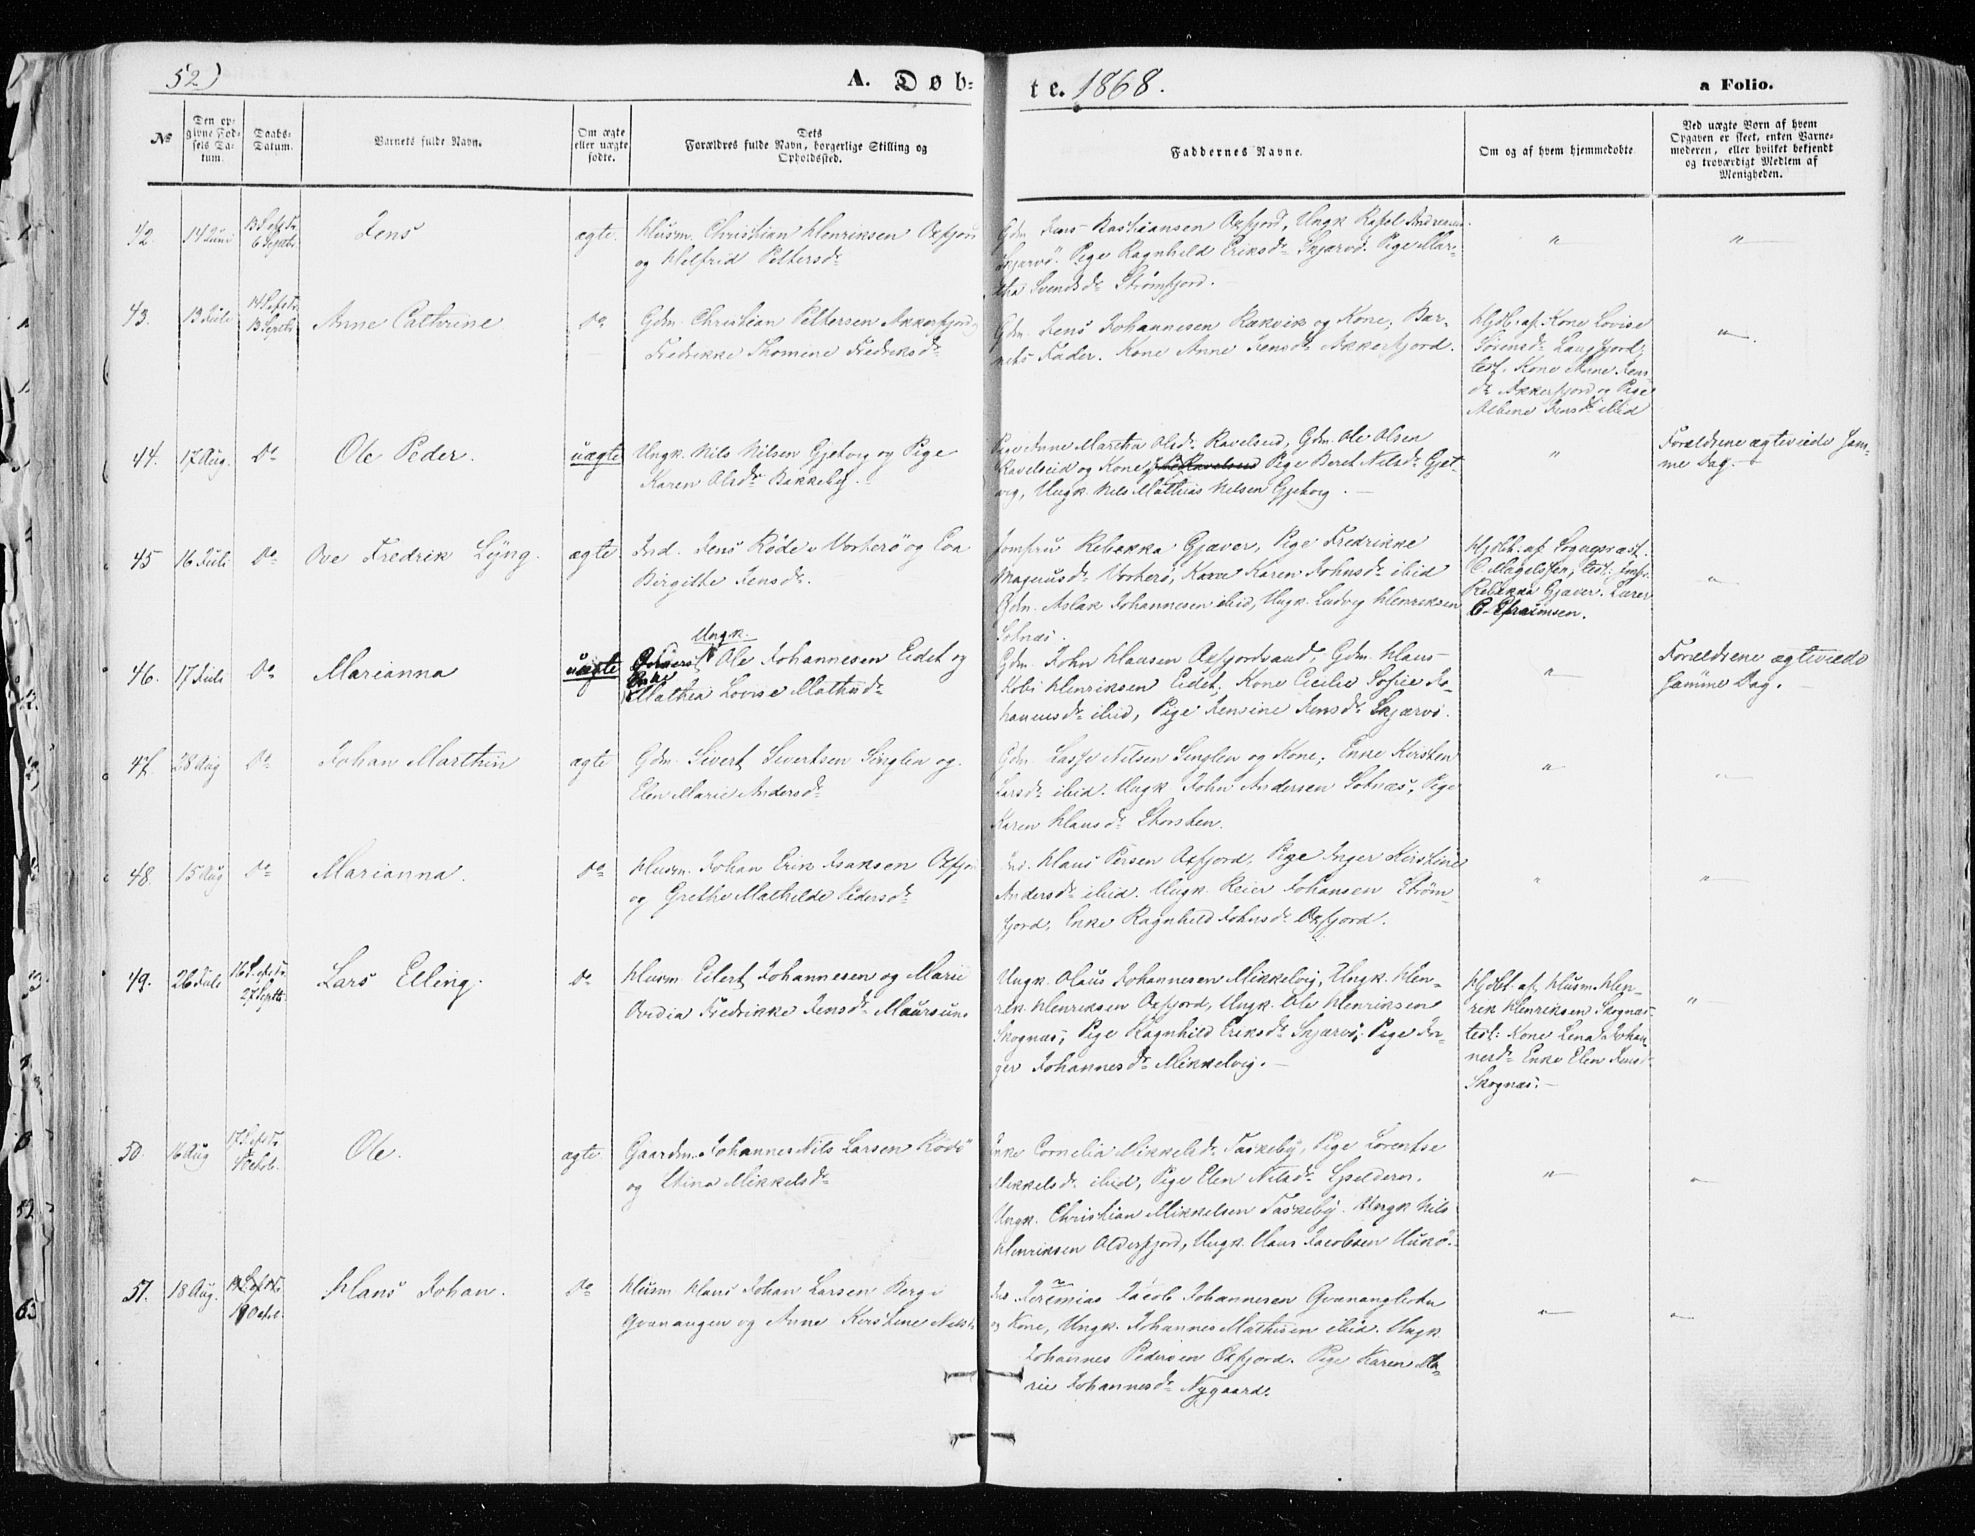 52)
A. Døb-
te. 1868.
a Folio.
No
Den op-
givne Fød-
sels Da-
tum.
Daabs-
Datum.
Barnets fulde Navn.
Om ægte
eller uægte
fødte.
Dets
Forældres fulde Navn, borgerlige Stilling og
Opholdssted.
Faddernes Navne.
Om og af hvem hjemmedøbte.
Ved uægte Børn af hvem
Opgaven er skeet, enten Barne-
moderen, eller hvilket bekjendt
og troværdigt Medlem af
Menigheden.
42 14 Juni 13 S. eft. Tr.
6 Septbr.
Jens
ægte.
Husm. Christian Henriksen Oxfjord
og Helfrid Pettersd.
Gdm. Jens Bastiansen Oxfjord, Ungk.
Skjærvø. Pige Ragnhild Eriksd. Skjærvø. Pige Mar-
tha Svendsd. Strømfjord.
"
"
43. 13 Juli 14 S. eft. Tr.
13 Septbr.
Anne Cathrine
Do
Gdm. Christian Pettersen Akkerfjord
Fredrikke Thomine Fredriksd.
Gdm. Jens Johannesen Rækvik og Kone, Bar-
nets Fader. Kone Anne Jensd. Akkerfjord.
Hjdb. af Kone Lovise
Sørensd. Langfjord,
test. Kone Anne Jens-
d. Akkerfjord og Pige
Albine Jensd. ibid
"
44. 17 Aug. Do
Ole Peder.
uægte
Ungk. Nils Nilsen Gjøvig og Pige
Karen Olsd. Bakkeby.
Pige Anne Martha Olsd. Ravelseid, Gdm. Ole Olsen
Ravelseid og Kone Pige Beret Nilsd. Gjø-
vig, Ungk. Nils Mathias Nilsen Gjøvig.
"
Forældrene ægteviede sam-
me Dag.
45 16 Juli Do
Ove Fredrik Lyng.
ægte
Ind. Jens Røde Vorterø og Eva
Birgithe Jensd.
Jomfru Rebekka Gjæver, Pige Fredrikke
Magnusd. Vorterø, Kone Karen Johnsd. ibid
Gdm. Aslak Johannesen ibid, Ungk. Ludvig Henriksen
Sotnæs.
Hjdbt. af Sognepræst
C. Magelssen, test: Jomfr.
Rebekka Gjæver. Lærer
C. Efraimsen.
"
46. 17 Juli Do
Marianna
uægte
Ungk.
Ole Johannesen Eidet og
Enke
Mathea Lovise Mathisd.
Gdm. John Hansen Oxfjordvand, Gdm. Hans
Henriksen Eidet, Kone Cecilie Sofie Jo-
hannesd. ibid, Pige Jensine Jensd. Skjærvø.
"
Forældrene ægteviede
samme Dag.
47. 28 Aug Do
Johan Marthin
ægte
Gdm. Sivert Sivertsen Singlen og
Elen Marie Andersd.
Gdm. Lasse Nilsen Singlen og Kone, Enke Kirsten
Larsd. ibid. Ungk. John Andersen Sotnæs, Pige
Karen Hansd. Storsten.
"
"
48. 15 Aug Do
Marianna.
Do
Husm. Johan Erik Isaksen Oxfjord
og Grethe Mathilde Pedersd.
Ind. Hans Persen Oxfjord, Pige Inger Kirstine
Andersd. ibid. Ungk. Reier Johansen Strøm-
fjord, Enke Ragnhild Johnsd. Oxfjord.
"
"
49. 26 Juli 16 S. eft. Tr.
27 Septbr.
Lars Elling.
Do
Husm. Eilert Johannesen og Marie
Ovidia Fredrikke Jensd. Maursund
Ungk. Olaus Johannesen Mikkelvig, Ungk. Hen-
rik Henriksen Oxfjord, Ungk. Ole Henriksen
Skognæs, Pige Ragnhild Eriksd. Skjærvø, Pige In-
ger Johannesd. Mikkelvig.
Hjdbt. af Husm. Hen-
rik Henriksen Skognæs-
test: Kone Lena Johan-
nesd. Enke Elen Jensd.
Skognæs.
"
50. 16 Aug 17 S. eft. Tr.
4 Octob.
Ole.
ægte
Gaardm. Johannes Nils Larsen Rødø
og Stina Mikkelsd.
Enke Cornelia Mikkelsd. Taskeby, Pige Lorentse
Mikkelsd. ibid, Pige Elen Nilsd. Spilderen.
Ungk. Christian Mikkelsen Taskeby. Ungk Nils
Henriksen Olderfjord, Ungk. Hans Jacobsen Hukø.
"
"
51. 18 Aug. 19 S. eft. Tr.
18 Octob.
Hans Johan.
Do
Husm. Hans Johan Larsen Berg i
Qvanangen og Anne Kirstine Nilsd.
Ind. Jeremias Jacob Johannesen Qvanangbotn
og Kone, Ungk. Johannes Mathisen ibid. Ungk
Johannes Pedersen Oxfjord. Pige Karen Ma-
rie Johannesd. Nygaard.
"
"